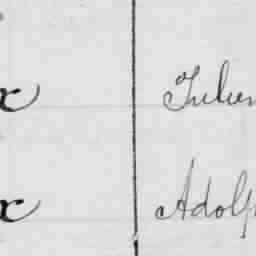 x Julien
x Adolp